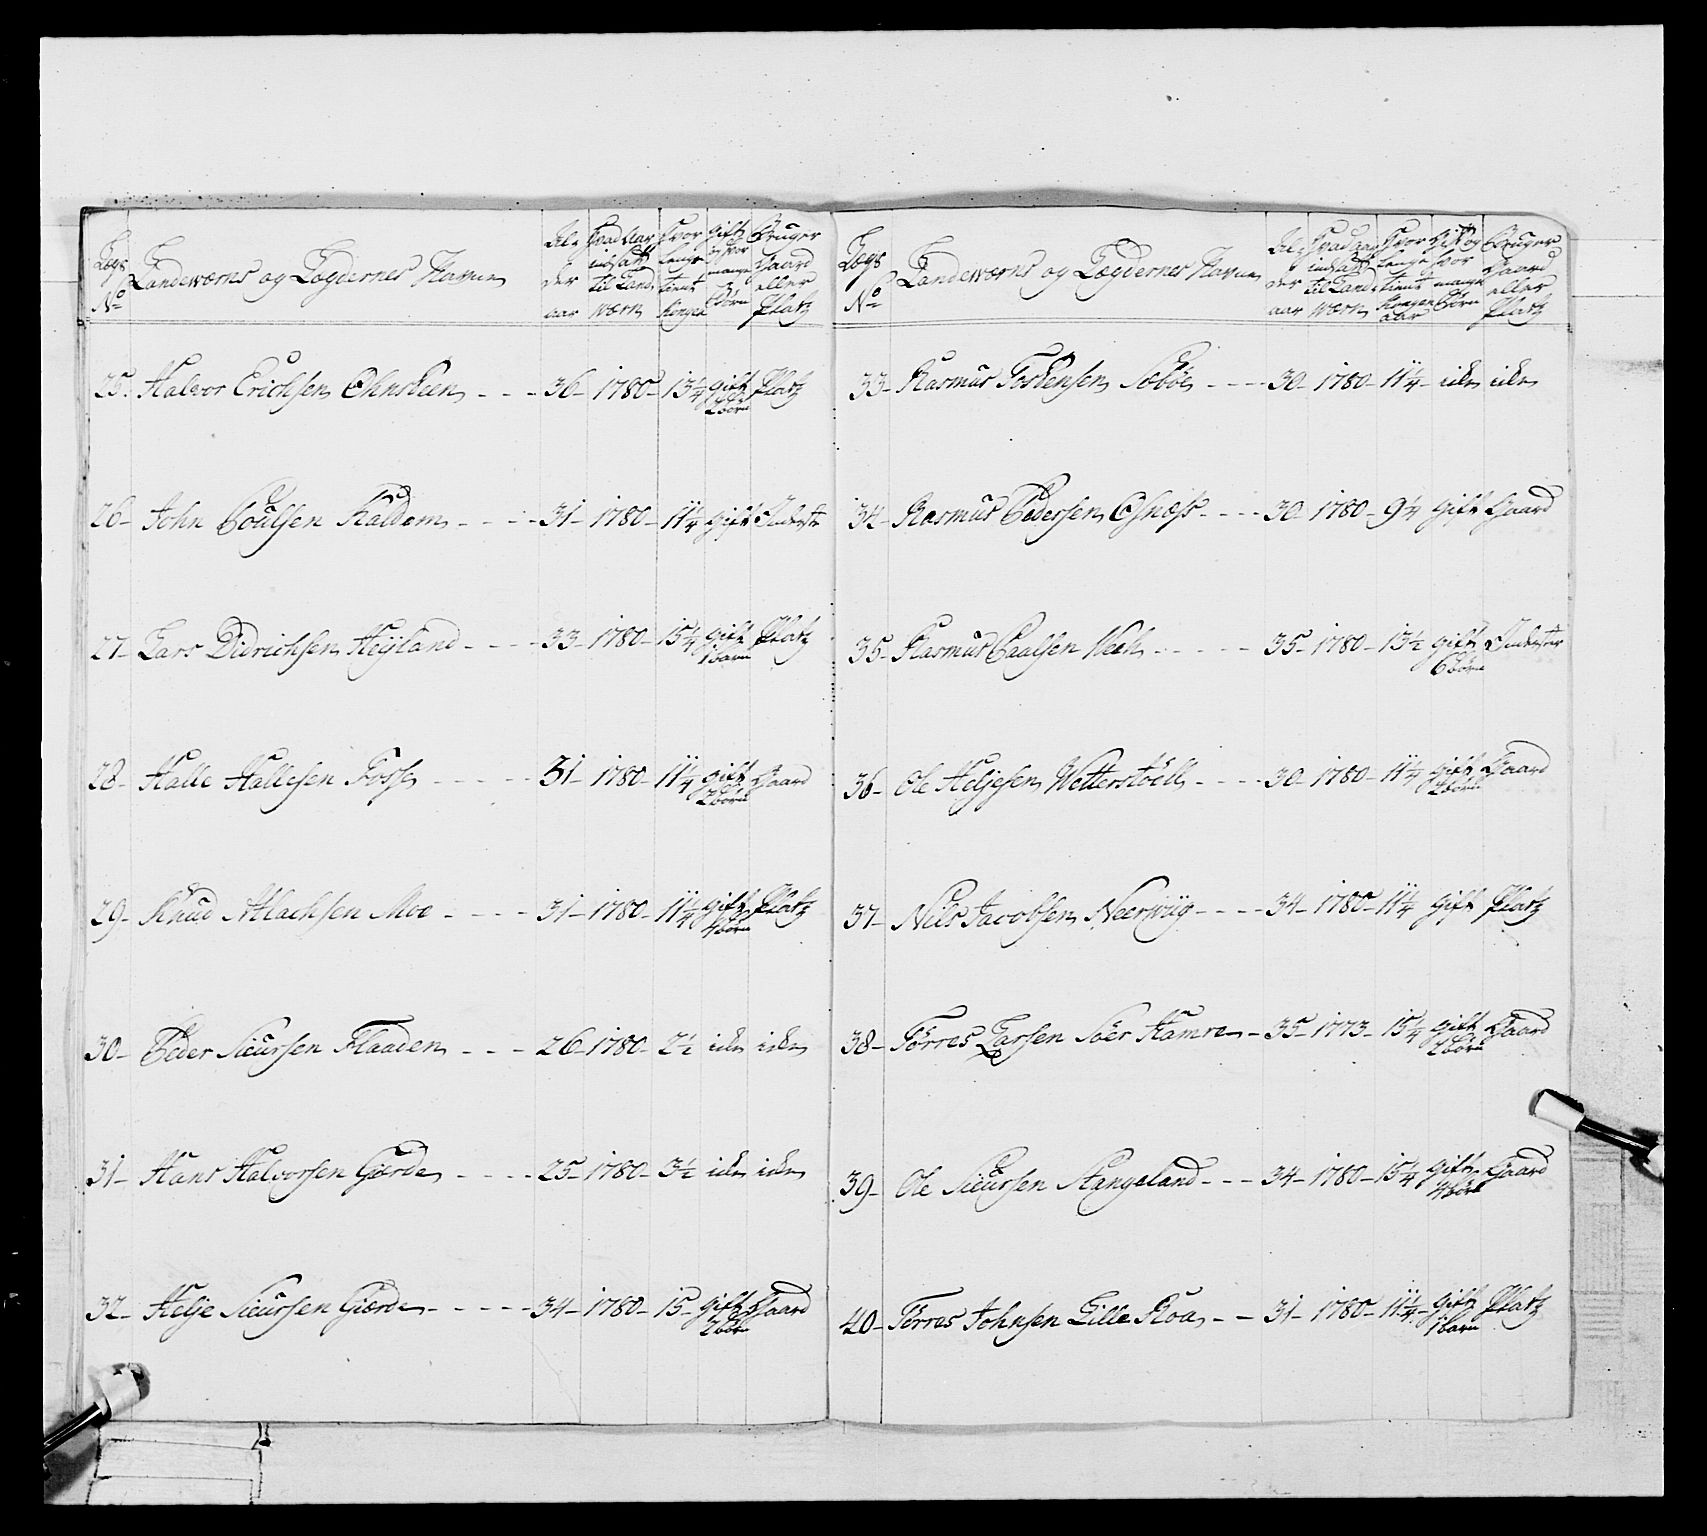 Lægs No
Landeværns og Lægdernes Navne
Al-
der
aar
Hvad Aar
indsatt
til Land-
værn
Hvor
længe
tient
Kongen
Gift
og hvor
mange
Børn
Bruger
Gaard
eller
Platz
25. Halvor Erichsen - - - 36 - 1780 - 13¼ gift Platz
2 børn
26 - John Poulsen Kaldem - - - 31 - 1780 - 11¼ gift Inderste
27 - Lars Didrichsen Heyland - - - 33 - 1780 - 15¼ gift Platz
1 barn
28 - Halle Hallesen Fosse - - - 31 - 1780 - 11¼ gift Gaard
2 børn
29 - Knud Moe - - - 31 - 1780 - 11¼ gift Platz
4 børn
30 - Peder Siursen Flaaden - - - 26 - 1780 - 2½ icke icke
31 - Hans Halvorsen Gierde - - - - 25 - 1780 - 3½ icke icke
32 - Helje Siursen Gierde - - - - - 34 - 1780 - 15 - gift Gaard
2 børn
Lægs No
Landeværns og Lægdernes Navne
Al-
der
aar
Hvad aar
indsatt
til Land-
værn
Hvor
længe
tient
Kongen
aar
Gift og
hvor
mange
Børn
Bruger
Gaard
eller
Platz
33 - Rasmus Torkensen Sæbøe - - - - 30 - 1780 - 11¼ - icke icke
34 - Rasmus Pedersen Osnæss - - - - 30 - 1780 - 9¼ gift Gaard
35 - Rasmus Paalsen Weeh - - - - - 35 - 1780 - 13½ gift Inderster
6 børn
36 - Ole Heljesen Wetterstøell - - - - 30 - 1780 - 11¼ gift Gaard
2 børn
37 - Nils Jacobsen Neerwiig - - - - 34 - 1780 - 11¼ gift Platz
38 - Törres Larsen Söer Hamre - 35 - 1773 - 15¼ gift Gaard
2 børn
39 - Ole Siursen Stangeland - - - 34 - 1780 - 15¼ gift Gaard
4 børn
40 - Törres Johnsen Lille Roa - - 31 - 1780 - 11¼ - gift Platz
1 barn